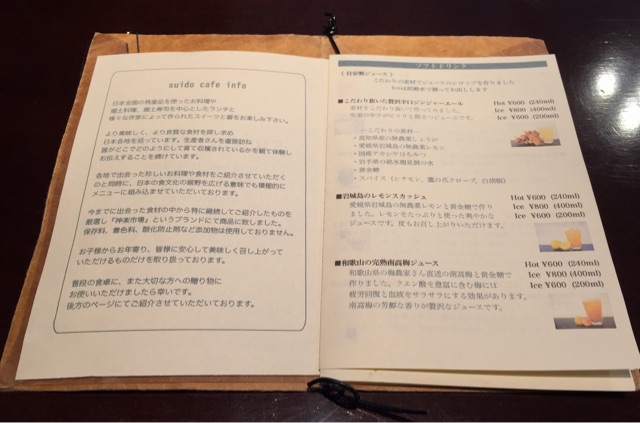 suido cafe info
日本全国の特産品を使ったお料理や
郷土料理、郷土寿司を中心としたランチと
様々な作家によって作られたスイーツと器をお楽しみ下さい。
より美味しく、より良質な食材を探し求め
日本各地を巡っています。生産者さんを直接訪ね
皆がどこでどのようにして育て収穫されているかを観て体験し
お伝えすることを続けています。
各地で出会った珍しいお料理や食材をご紹介させていただく
のと同時に、日本の食文化の裾野を広げる意味でも積極的に
メニューに組み込ませていただいております。
今までに出会った食材の中から特に継続してご紹介したものを
厳選し『神楽市場』というブランドにて商品に致しました。
保存料、着色料、酸化防止剤など添加物は使用しておりません。
お子様からお年寄り、皆様に安心して美味しく召し上がって
いただけるものだけを取り扱っております。
普段の食卓に、また大切な方への贈り物に
お使いいただけましたら幸いです。
後方のページにてご紹介させていただいております。
ソフトドリンク
[自家製ジュース]
こだわりの素材でジュースのシロップを作りました
Iceは炭酸水で割ってお出しします
■こだわり抜いた贅沢辛口ジンジャーエール Hot ¥600 (240ml)
素材をこだわり抜いて作ってみました。 Ice ¥800 (400ml)
生姜の辛さがピリリと際立つジュースです。 Ice ¥600 (200ml)
―こだわりの素材―
・高知県産の無農薬しょうが
・愛媛県岩城島の無農薬レモン
・国産アカシヤはちみつ
・岩手県の鍾乳洞星洞の水
・黄金糖
・スパイス(シナモン、鷹の爪クローブ、白胡椒)
■岩城島のレモンスカッシュ Hot ¥600 (240ml)
愛媛県岩城島の無農薬レモンと黄金糖で作り Ice ¥800 (400ml)
ました。レモンをたっぷりと使った爽やかな Ice ¥600 (200ml)
ジュースです。皮もお召し上がりいただけます。
■和歌山の完熟南高梅ジュース Hot ¥600 (240ml)
和歌山県の梅農家さん直送の南高梅と黄金糖で Ice ¥800 (400ml)
作りました。クエン酸を豊富に含む梅には Ice ¥600 (200ml)
疲労回復と血液をサラサラにする効果があります。
南高梅の芳醇な香りが贅沢なジュースです。